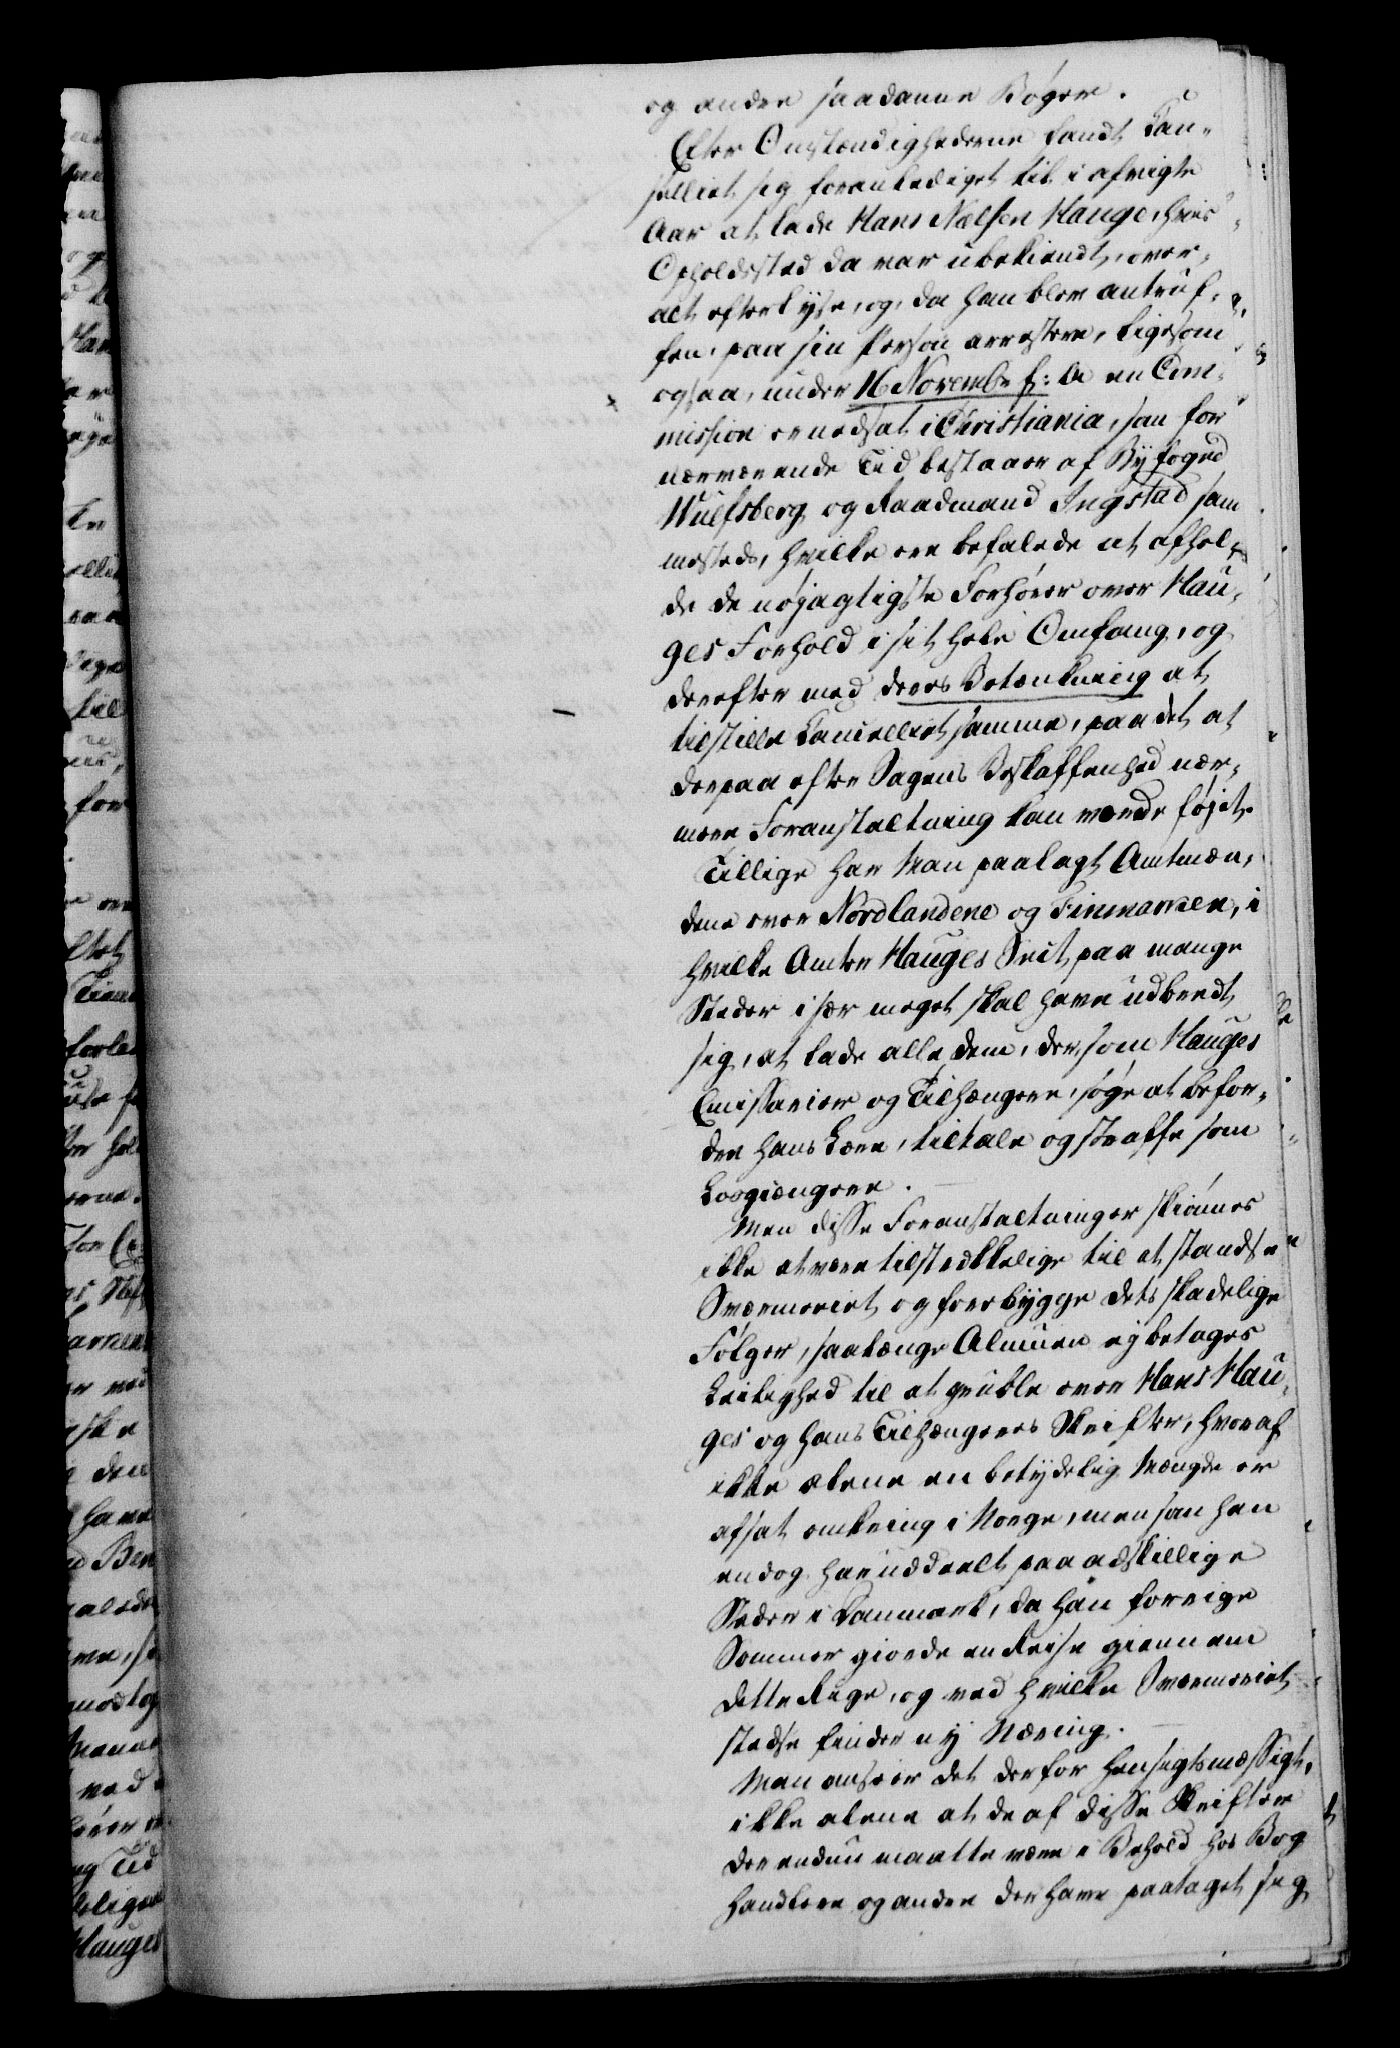 og andre saadanne Bøger.
Efter Omstændighederne fandt Can-
celliet sig foranlediget til i afvigte
Aar at lade Hans Nielsen Hauge, hvis
Opholdssted da var ubekiendt, over-
alt efterlyse, og, da han blev antruf-
fen, paa sin Person arrestere, ligesom
ogsaa, under 16 Novembr f: A en Com-
mission er nedsat i Christiania, som for
nærværende Tid bestaaer af Byfoged
Wulfsberg og Raadmand Ingstad sam-
mesteds, hvilke ere befalede at afhol-
de de nøjagtigste Forhører over Hau-
ges Forhold i sit hele Omfang, og
derefter med deres Betænkning at
tilstille Cancelliet samme, paa det at
derpaa efter Sagens Beskaffenhed nær-
mere Foranstaltning kan vorde føjet.
Tillige har Man paalagt Amtmæn-
dene over Nordlandene og Finmarken, i
hvilke Amter Hauges Sect paa mange
Steder især meget skal have udbredt
sig, at lade alle dem, der, som Hauges
Emissarier og Tilhængere, søge at befor-
dre hans Lære, tiltale og straffe som
Løsgiængere.
Men disse Foranstaltninger skiønnes
ikke at være tilstrækkelige til at standse
Sværmeriet og forebygge dets skadelige
Følger, saalænge Almuen ej betages
Leilighed til at gruble over Hans Hau-
ges og hans Tilhængeres Skrifter, hvoraf
ikke alene en betydelig Mængde er
afsat omkring i Norge, men som han
endog har uddeelt paa adskillige
Steder i Danmark, da han forrige
Sommer giorde en Reise giennem
dette Rige, og ved hvilke Sværmeriet
stedse finder ny Næring.
Man anseer det derfor hensigtsmæssigt,
ikke alene at de af disse Skrifter
der endnu maatte være i Behold hos Bog
handlere og andre der have paataget sig